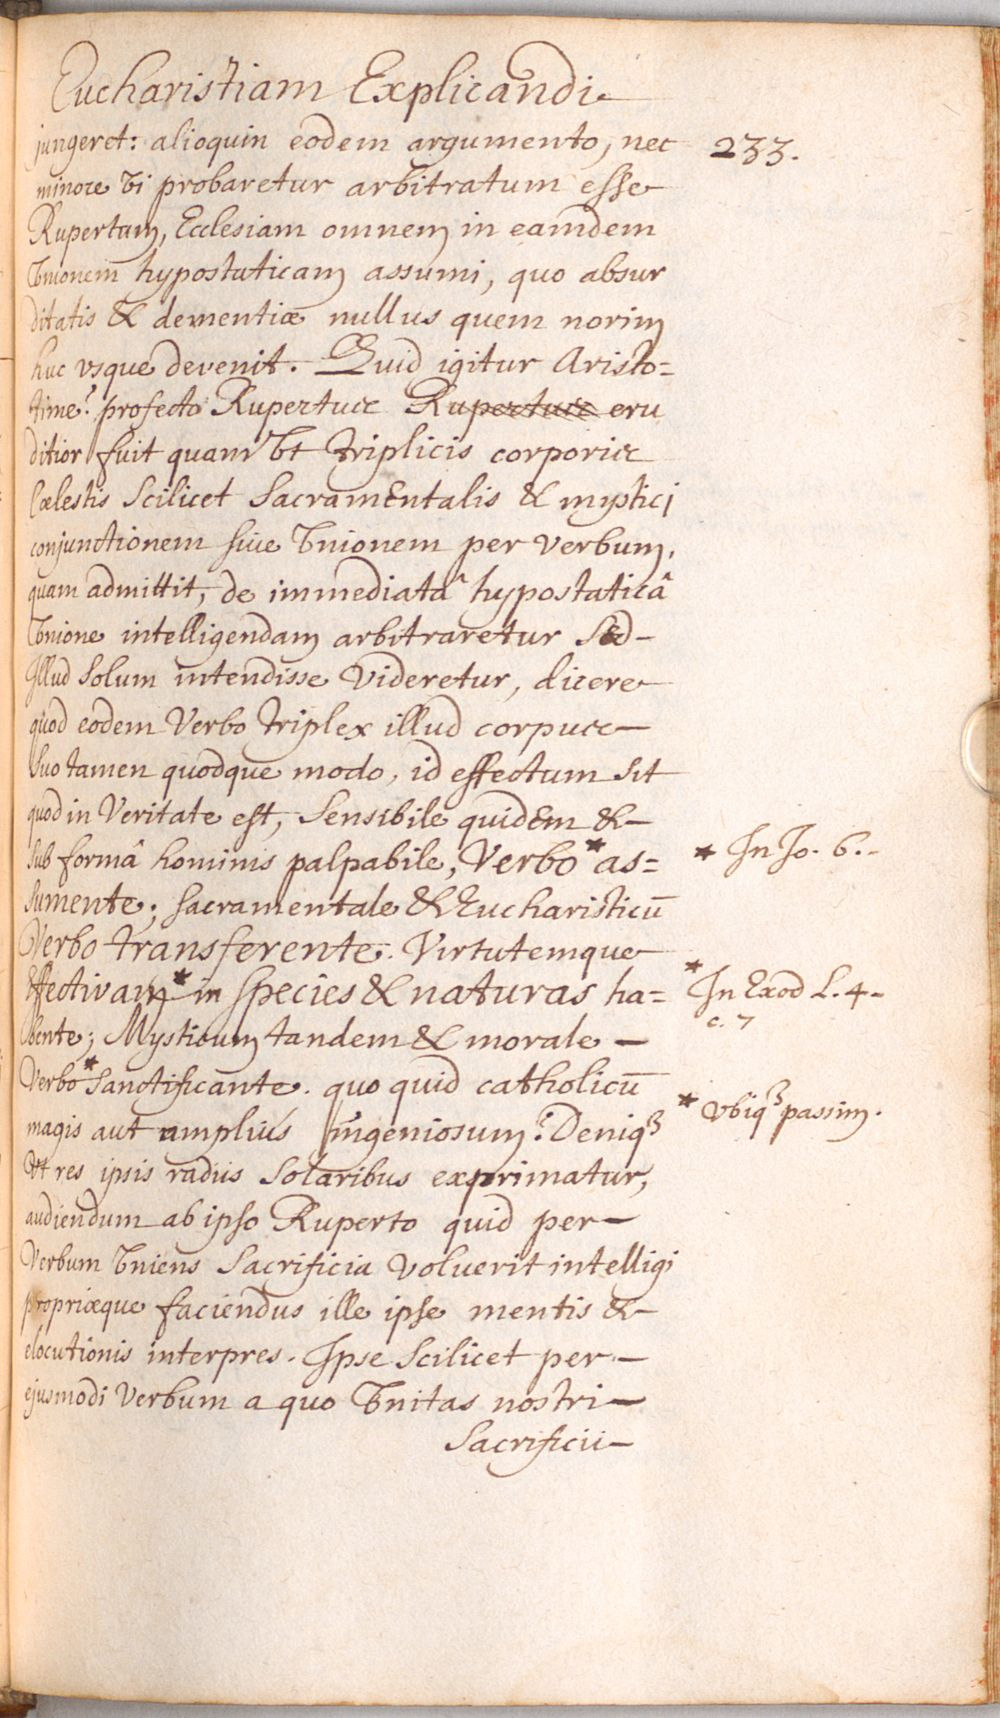 Eucharistiam Explicandi
233.
jungeret: alioquin eodem argumento, nec
minore vi probaretur arbitratum esse
Rupertum, Ecclesiam omnem in eamdem
vnionem hypostaticam assumi, quo absur
ditatis & dementiæ nullus quem norim
huc vsque devenit. Quid igitur Aristo=
time? profecto Rupertus Rupertus eru
ditior fuit quam vt triplicis corporis
Cœlestis Scilicet Sacramentalis & mystici
conjunctionem sive vnionem per verbum,
quam admittit, de immediatâ hypostaticâ
vnione intelligendam arbitraretur Sed
Illud Solum intendisse Videretur, dicere
quod eodem Verbo triplex illud corpus
Suo tamen quodque modo, id effectum sit
quod in Veritate est, Sensibile quidem &
sub formâ hominis palpabile, Verbo * as=
sumente; sacramentale & Eucharisticū
Verbo transferente. Virtutemque
Effectivam * in species & naturas ha=
bente; Mysticum tandem & morale
Verbo * Sanctificante. quo quid catholicū
magis aut amplius ingeniosum? Deniqꝫ
Vt res ipsis radiis Solaribus exprimatur,
audiendum ab ipso Ruperto quid per
Verbum vniens Sacrificia voluerit intelligi
propriæque faciendus ille ipse mentis &
elocutionis interpres. Ipse Scilicet per
ejusmodi Verbum a quo vnitas nostri
Sacrificii
* In Jo. 6.
* In Exod L. 4
c. 7
* Vbiqꝫ passim.